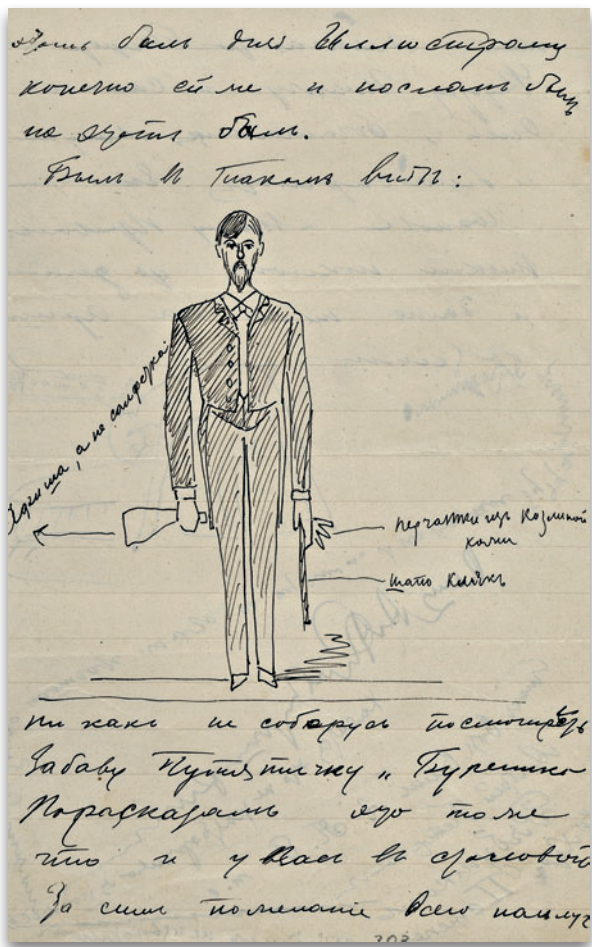 былъ для Иллюстрацiи
конечно ей не и посланъ былъ
но былъ.
Былъ въ такомъ видѣ:
Афиша, а не салфетка
перчатки изъ Козлиной
кожи
шапо Клякъ
ни какъ не соберусь посмотрѣть
Забаву Путятичну „
По розсказамъ это тоже
что и у Васъ въ столовой
За симъ пожеланiе Всего наилуч
303